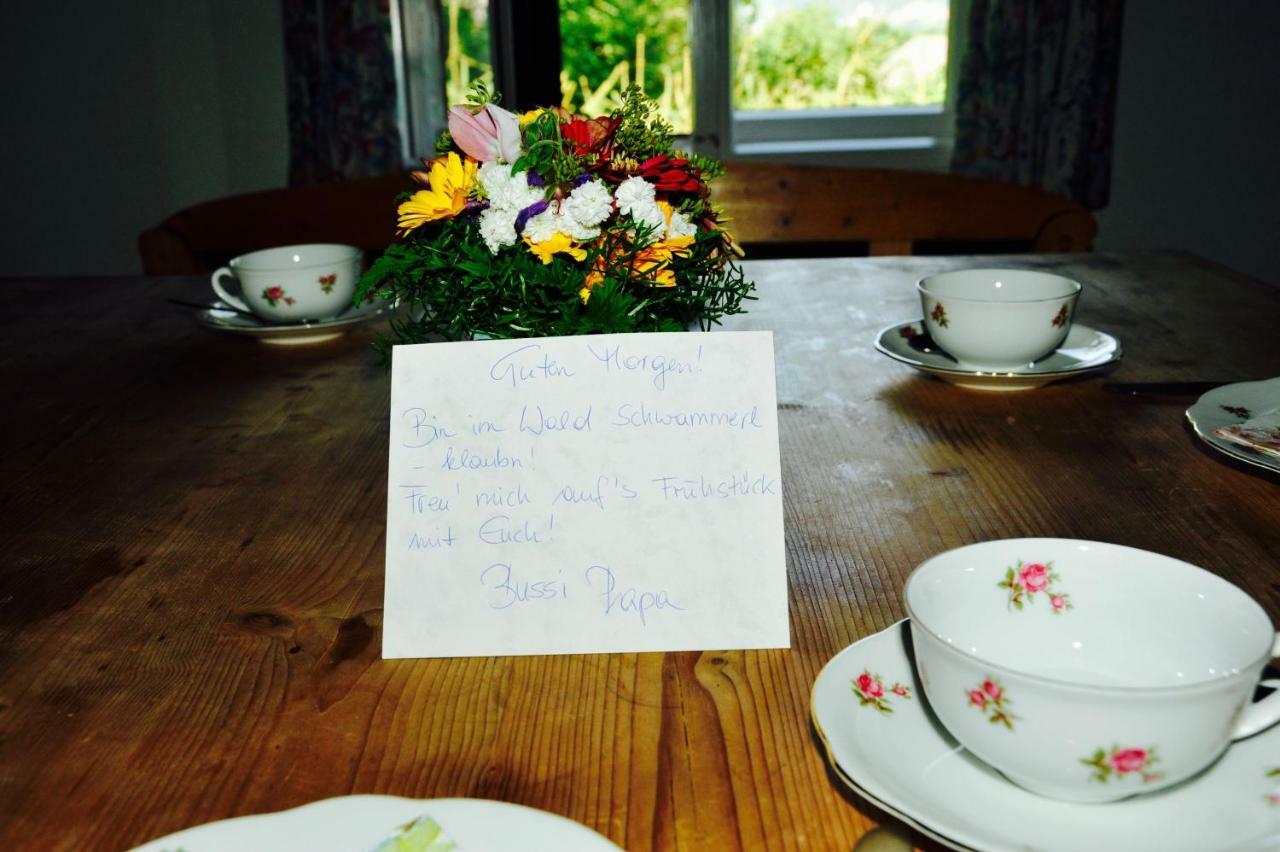 Guten Morgen!
Bin im Wald Schwammerl
- klaubn!
Freu' mich auf's Frühstück
mit Euch!
Bussi Papa